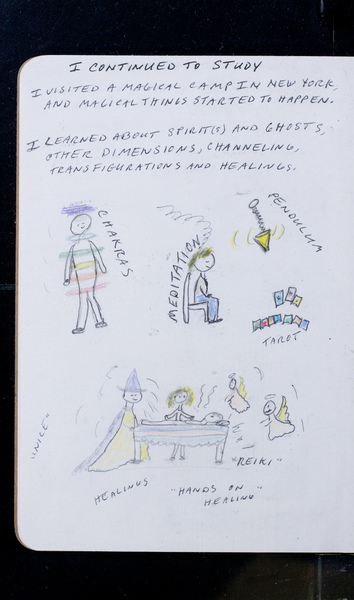 I CONTINUED TO STUDY
I VISITED A MAGICAL CAMP IN NEW YORK,
AND MAGICAL THINGS STARTED TO HAPPEN.
I LEARNED ABOUT SPIRIT(S) AND GHOSTS,
OTHER DIMENSIONS, CHANNELING,
TRANSFIGURATIONS AND HEALINGS.
CHAKRAS
MEDITATION
PENDULUM
TAROT
"NICE"
HEALINGS
"HANDS ON"
HEALING
"REIKI"